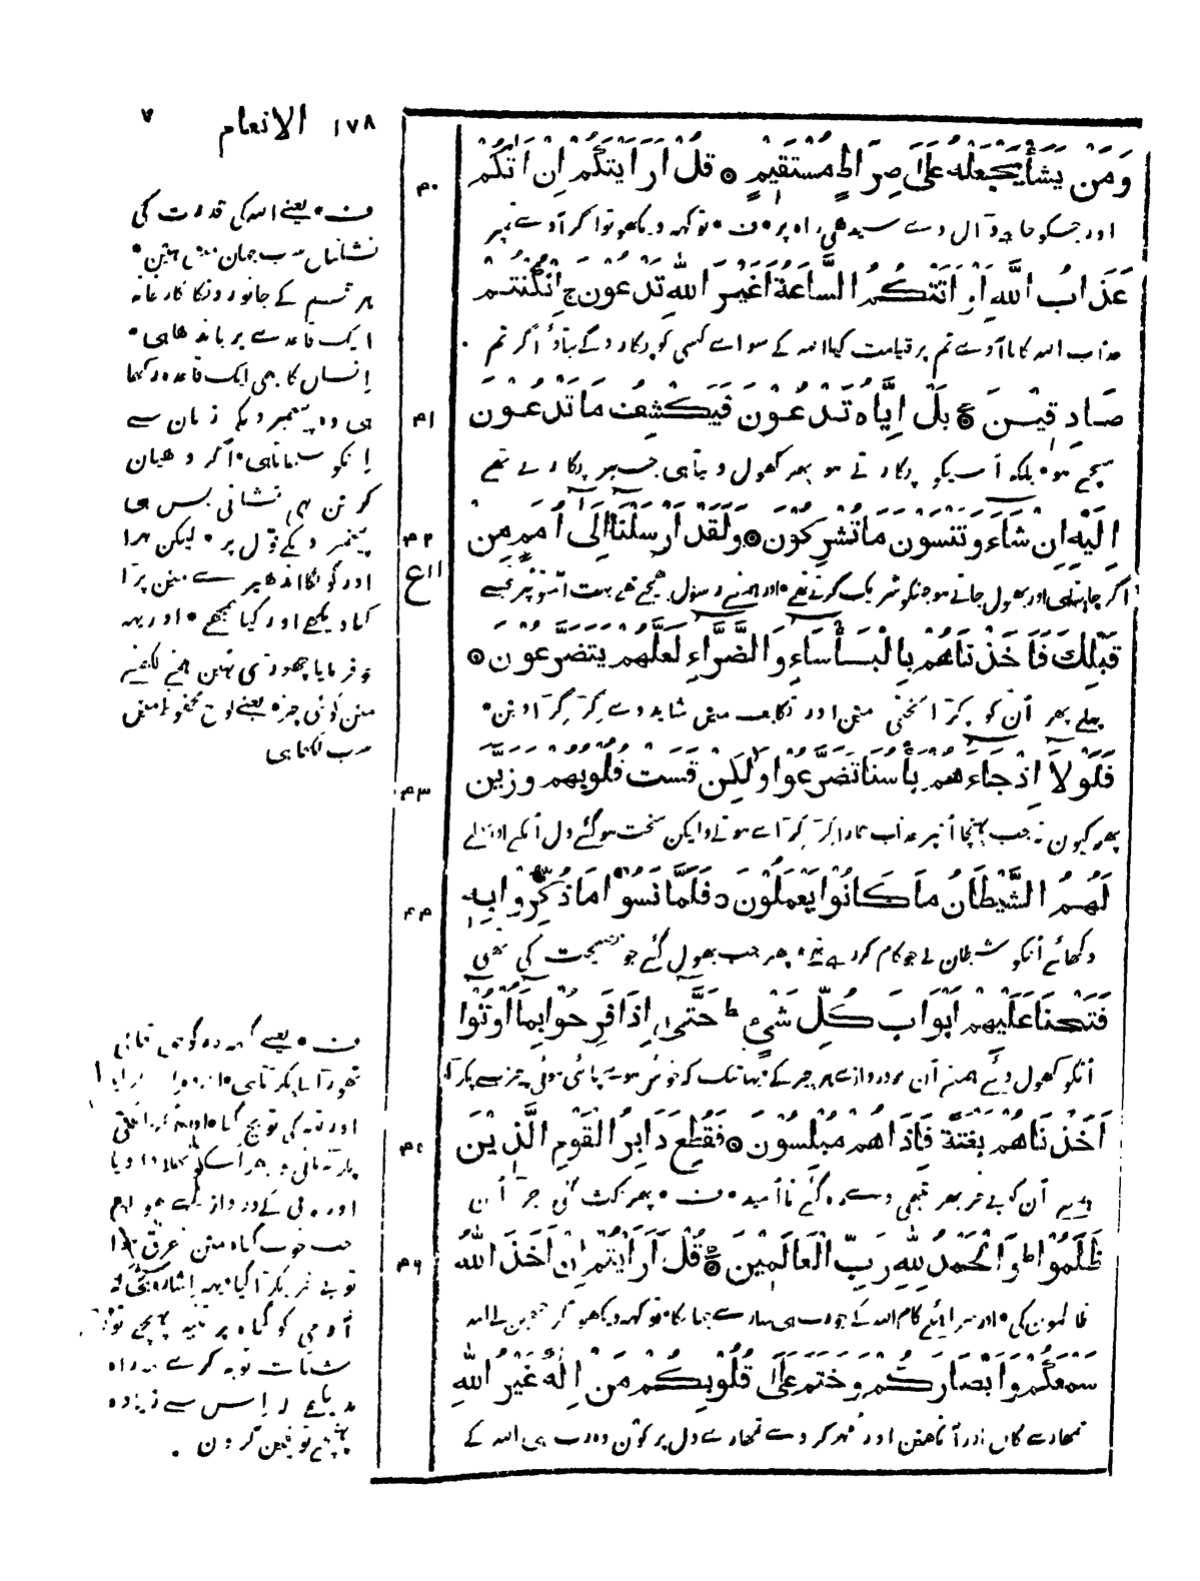 ١٧٨ الانعام ٧
وَمَنْ يَشَأْ يَجْعَلْهُ عَلَىٰ صِرَاطٍ مُسْتَقِيمٍ ۞ قُلْ أَرَأَيْتَكُمْ إِنْ أَتَٰكُمْ
٤٠
اور جسکو چاہے ڈال دے سیدھی راہ پر * ف * تو کہہ دیکھو تو اگر آوے تمپر
عَذَابُ اللَّهِ أَوْ أَتَتْكُمُ السَّاعَةُ أَغَيْرَ اللَّهِ تَدْعُونَ ج إِنْ كُنْتُمْ
عذاب اللہ کا یا آوے تم پر قیامت کیا اللہ کے سواے کسی کو پکارو گے بتاؤ اگر تم
صَادِقِينَ ۞ بَلْ إِيَّاهُ تَدْعُونَ فَيَكْشِفُ مَا تَدْعُونَ
٤١
سچے ہو * بلکہ اسیکو پکارتے ہو پھر کھول دیتا ہی جسپر پکارتے تھے
إِلَيْهِ إِنْ شَاءَ وَتَنْسَوْنَ مَا تُشْرِكُونَ ۞ وَلَقَدْ أَرْسَلْنَا إِلَىٰ أُمَمٍ مِنْ
٤٢
١١ع
اگر چاہتا ہی اور بھول جاتے ہو جنکو شریک کرتے تھے * اور ہمنے رسول بھیجے تھے بہت امتونپر تجھسے
قَبْلِكَ فَأَخَذْنَاهُمْ بِالْبَأْسَاءِ وَالضَّرَّاءِ لَعَلَّهُمْ يَتَضَرَّعُونَ ۞
پہلے پھر اُن کو پکڑا سختی مین اور تکلیف مین شاید وے گڑ گڑاوین *
فَلَوْلَا إِذْ جَاءَهُمْ بَأْسُنَا تَضَرَّعُوا وَلَٰكِنْ قَسَتْ قُلُوبُهُمْ وَزَيَّنَ
٤٣
پھر کیون نہ جب پہنچا اُنپر عذاب ہمارا گڑ گڑاے ہوتے ولیکن سخت ہو گئے دل اُنکے اور بھلے
لَهُمُ الشَّيْطَانُ مَا كَانُوا يَعْمَلُونَ ۞ فَلَمَّا نَسُوا مَا ذُكِّرُوا بِهِ
٤٤
دکھائے اُنکو شیطان نے جو کام کر رہے تھے * پھر جب بھول گئے جو نصیحت کی تھی
فَتَحْنَا عَلَيْهِمْ أَبْوَابَ كُلِّ شَيْءٍ ط حَتَّىٰ إِذَا فَرِحُوا بِمَا أُوتُوا
اُنکو کھول دئے ہمنے اُن پر دروازے ہر چیز کے * یہانتک کہ خوش ہوے پائی ہوئی چیز سے پکڑا
أَخَذْنَاهُمْ بَغْتَةً فَإِذَا هُمْ مُبْلِسُونَ ۞ فَقُطِعَ دَابِرُ الْقَوْمِ الَّذِينَ
٤٥
ہمنے اُن کو بے خبر پھر تبھی وے رہ گئے نا اُمید * ف * پھر کٹ گئی جڑ اُن
ظَلَمُوا ط وَالْحَمْدُ لِلَّهِ رَبِّ الْعَالَمِينَ ۞ قُلْ أَرَأَيْتُمْ إِنْ أَخَذَ اللَّهُ
٤٦
ظالمون کی * اور سراہیے کام اللہ کے جو رب ہی سارے جہان کا * تو کہہ دیکھو تو اگر چھین لے اللہ
سَمْعَكُمْ وَأَبْصَارَكُمْ وَخَتَمَ عَلَىٰ قُلُوبِكُمْ مَنْ إِلَٰهٌ غَيْرُ اللَّهِ
تمھارے کان اور آنکھین اور مہر کر دے تمھارے دل پر کون وہ رب ہی اللہ کے
ف * یعنے اللہ کی قدرت کی
نشانیان سب جہان مین ہین *
ہر قسم کے جانورونکا کارخانہ
ایک قاعدے پر باندھا ہی *
اِنسان کا بھی ایک قاعدہ رکھا
ہی وہ پیغمبرونکی زبان سے
اِنکو سکھاتا ہی * اگر دھیان
کرین یہی نشانی بس ہی
پیغمبرونکے قول پر * لیکن بہرا
اور گونگا اندھیرے مین پڑا
کیا دیکھے اور کیا سمجھے * اور یہہ
جو فرمایا چھوڑی نہین ہمنے لکھنے
مین کوئی چیز * یعنے لوح محفوظ مین
سب لکھا ہی
ف * یعنے گنہ
تھوڑا سا پکڑتا ہی
اور توبہ کی توبچ گیا
اور
جب خوب گناہ مین غرق ہوا
تو بے خبر پکڑا گیا * یہہ اِشارہ
آدمی کو گناہ پر تنبیہ پہنچے تو
شتاب توبہ کرے
اِس سے زیادہ
پہنچے تو یقین کرون *